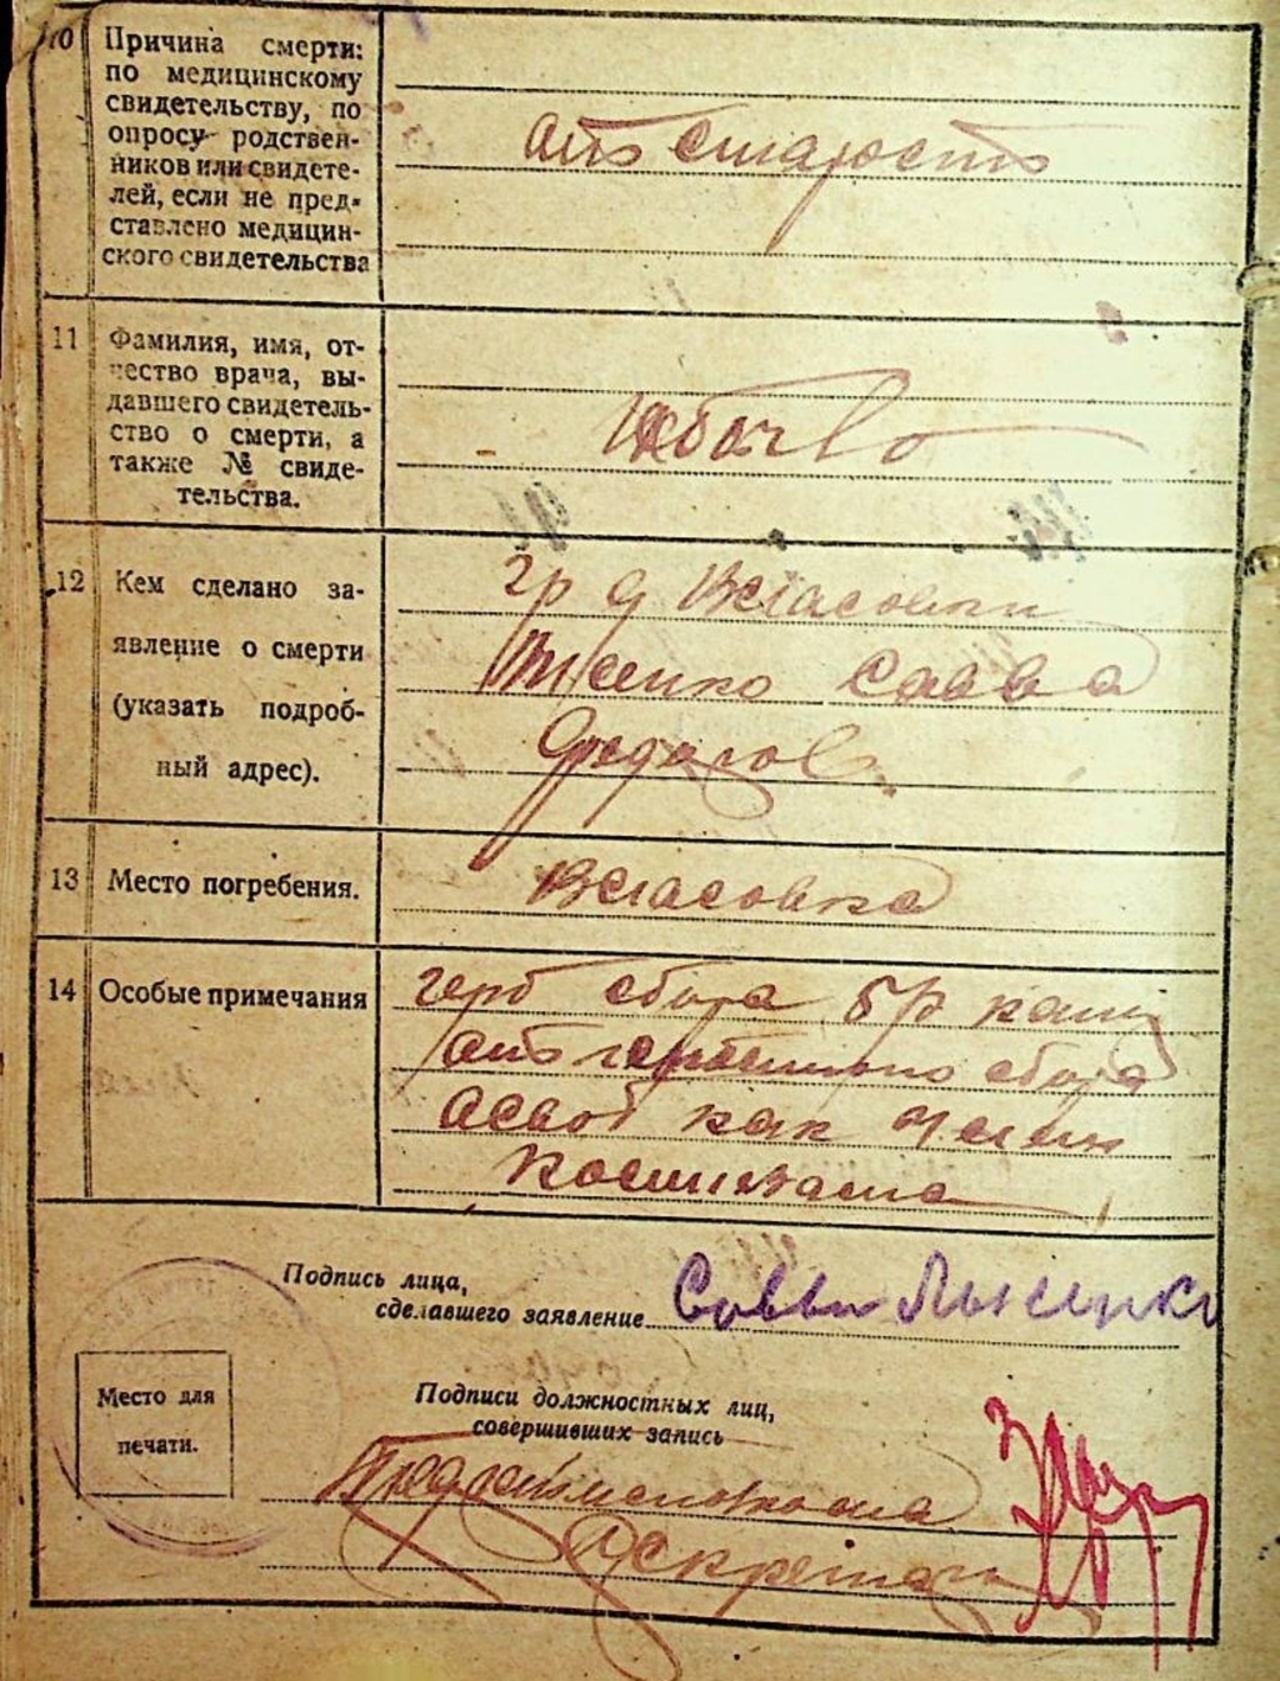 10 Причина смерти:
по медицинскому
свидетельству, по
опросу родствен-
ников или свидете-
лей, если не пред-
ставлено медицин-
ского свидетельства
отъ старость
11 Фамилия, имя, от-
чество врача, вы-
давшего свидетель-
ство о смерти, а
также № свиде-
тельства.
12 Кем сделано за-
явление о смерти
(указать подроб-
ный адрес).
гр д Власовки
Лисенко Савва
Федоров
13 Место погребения.
Власовка
14 Особые примечания
герб сбора 5 р
отъ гербового сбора
асвоб как член
Подпись лица,
сделавшего заявление
Савва Лысенко
Место для
печати.
Подписи должностных лиц,
совершивших запись
Секретарь